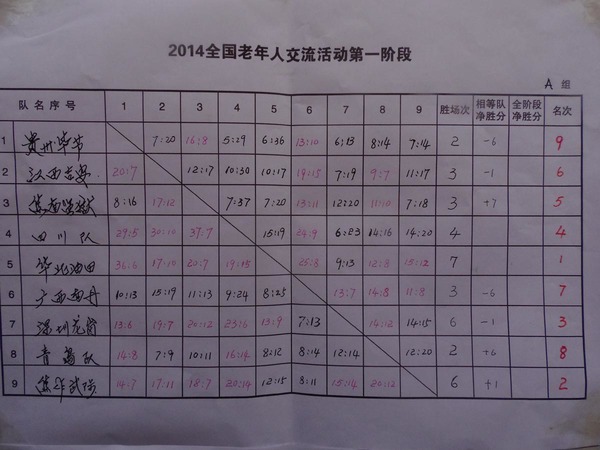 2014全国老年人交流活动第一阶段
A 组
队名序号 1 2 3 4 5 6 7 8 9 胜场次 相等队净胜分 全阶段净胜分 名次
1 贵州毕节 7:20 16:8 5:29 6:36 13:10 6:13 8:14 7:14 2 -6 9
2 江西吉安 20:7 12:17 10:30 10:17 19:15 7:19 9:7 11:17 3 -1 6
3 8:16 17:12 7:37 7:20 13:11 12:20 11:10 7:18 3 +7 5
4 四川队 29:5 30:10 37:7 15:19 24:9 6:23 14:16 14:20 4 4
5 华北油田 36:6 17:10 20:7 19:15 25:8 9:13 12:8 15:12 7 1
6 广西南丹 10:13 15:19 11:13 9:24 8:25 13:7 14:8 11:8 3 -6 7
7 深圳龙岗 13:6 19:7 20:12 23:6 13:9 7:13 14:12 14:15 6 -1 3
8 青岛队 14:8 7:9 10:11 16:14 8:12 8:14 12:14 12:20 2 +6 8
9 焦作武陟 14:7 17:11 18:7 20:14 12:15 8:11 15:14 20:12 6 +1 2